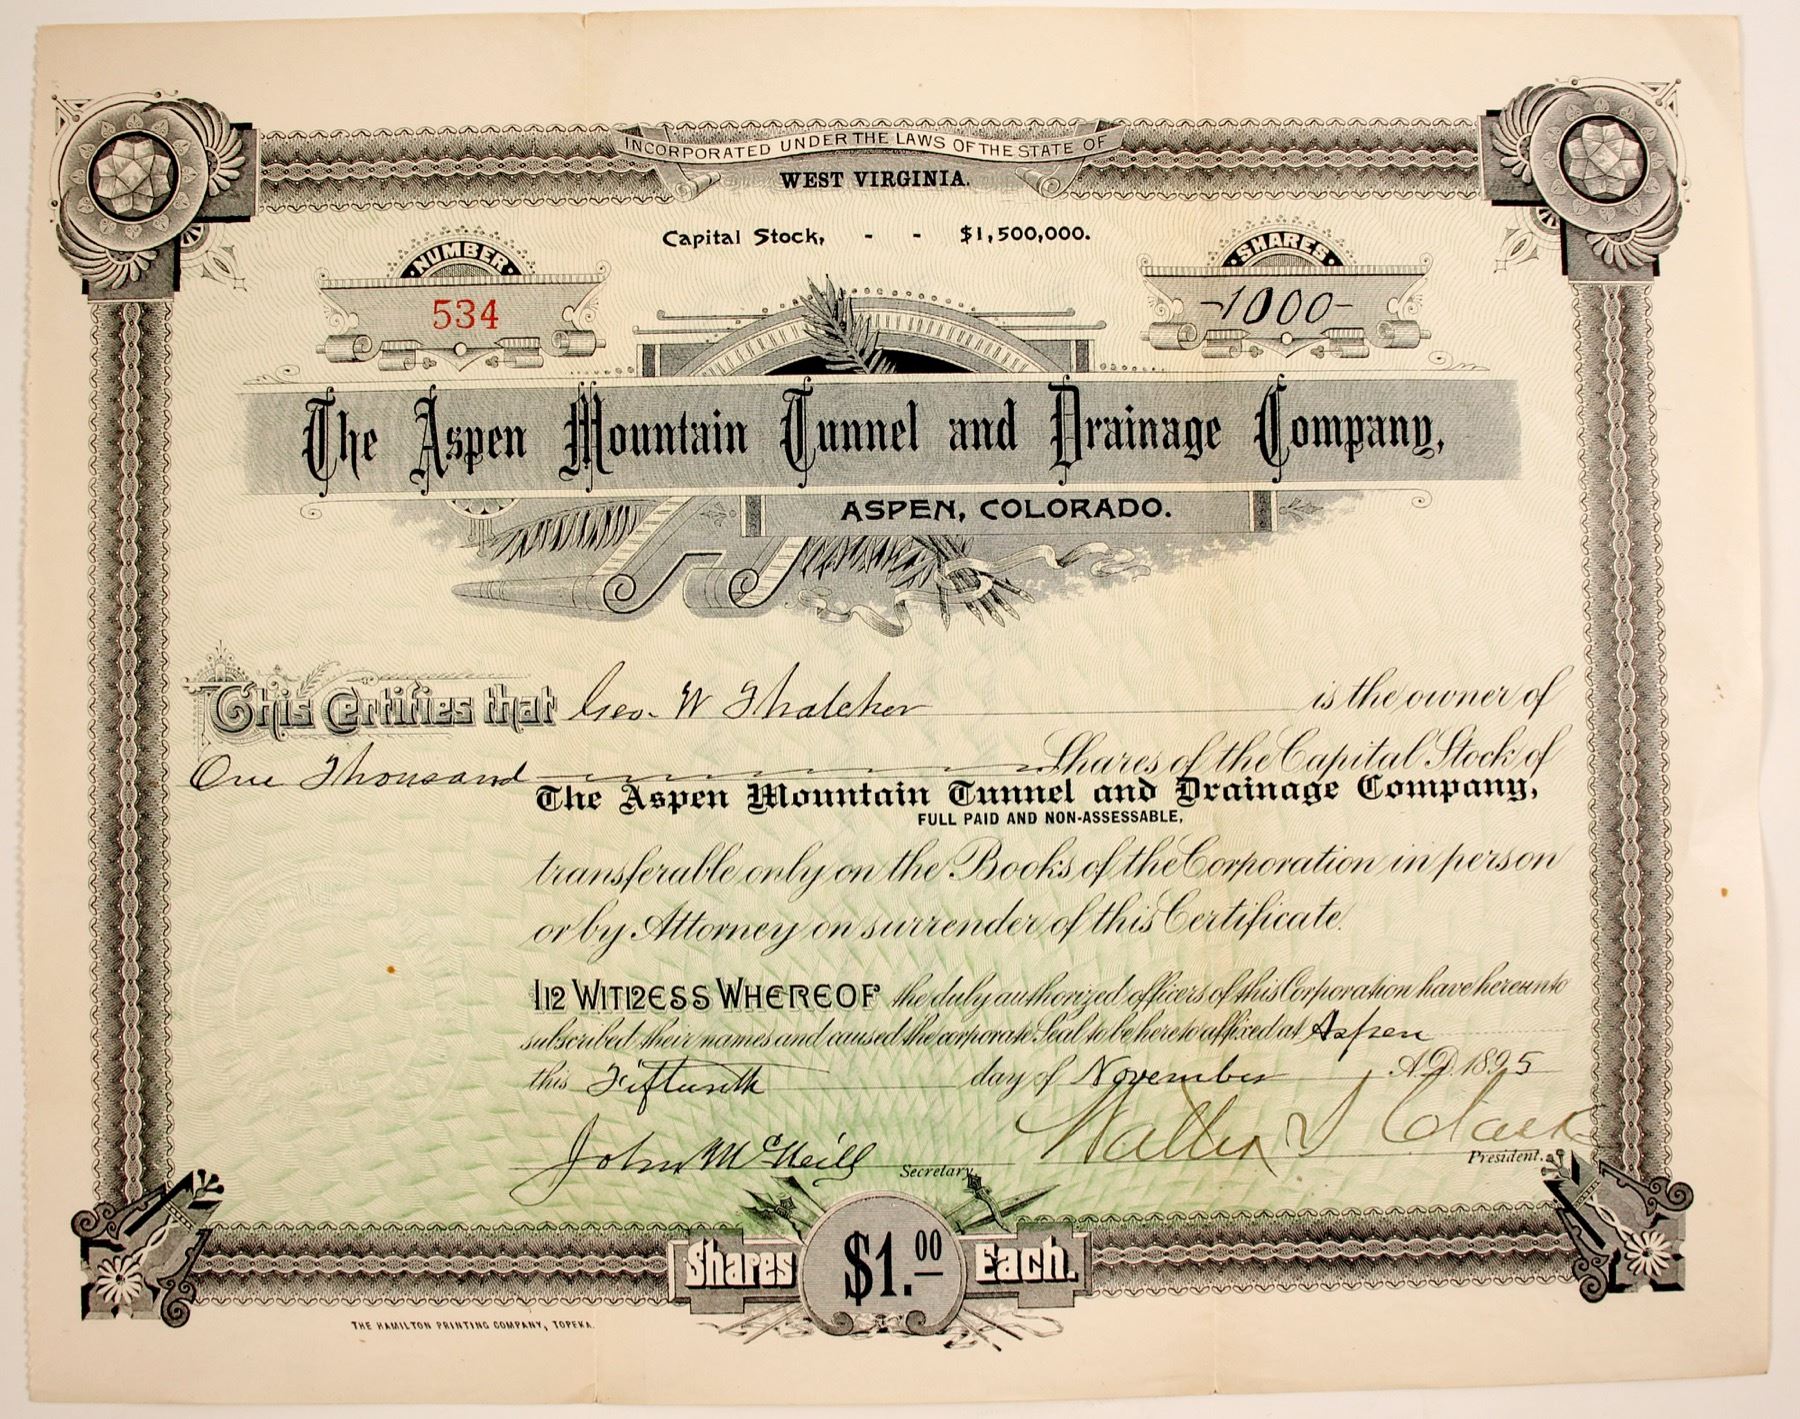 INCORPORATED UNDER THE LAWS OF THE STATE OF
WEST VIRGINIA.
Capital Stock, - - $1,500,000.
NUMBER
534
SHARES
-1000-
The Aspen Mountain Tunnel and Drainage Company,
ASPEN, COLORADO.
This Certifies that Geo. W Thatcher is the owner of
One Thousand Shares of the Capital Stock of
The Aspen Mountain Tunnel and Drainage Company,
FULL PAID AND NON-ASSESSABLE,
transferable only on the Books of the Corporation in person
or by Attorney on surrender of this Certificate.
In Witness Whereof the duly authorized officers of this Corporation have hereunto
subscribed their names and caused the corporate Seal to be hereto affixed at Aspen
this Fifteenth day of November A.D. 1895
John McNeill Secretary.
Walter S Clark President.
Shares $1.00 Each.
THE HAMILTON PRINTING COMPANY, TOPEKA.